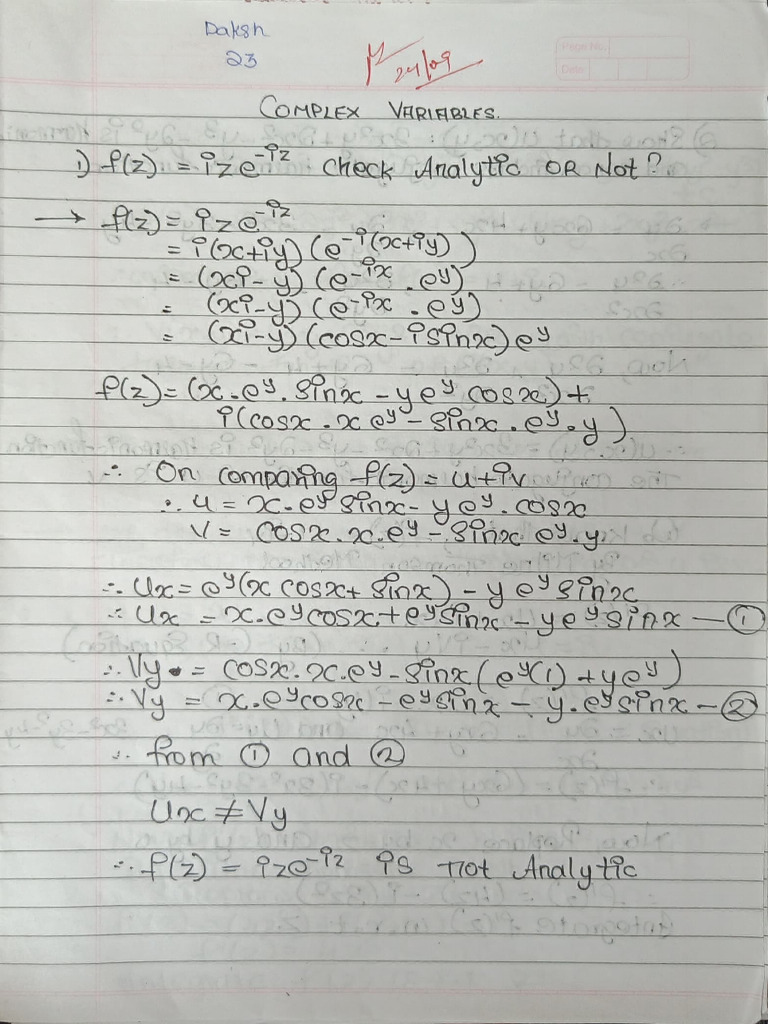 Daksh
23
24/09
Page No.
Date
COMPLEX VARIABLES.
1) f(z) = ize^-iz Check Analytic OR Not?
→ f(z) = ize^-iz
= i(x+iy) (e^-i(x+iy))
= (xi - y) (e^-ix . e^y)
= (xi-y) (e^-ix . e^y)
= (xi-y) (cosx - isinx) e^y
f(z) = (x.e^y. sinx - ye^y cosx) +
i(cosx . xe^y - sinx . e^y. y)
∴ On comparing f(z) = u+iv
∴ u = x.e^y sinx - ye^y. cosx
V = cosx. x. e^y - sinx e^y. y
∴ Ux = e^y(x cosx + sinx) - y e^y sinx
∴ Ux = x.e^y cosx + e^y sinx - ye^y sinx — ①
∴ Vy = cosx. x. e^y - sinx (e^y(1) + ye^y)
∴ Vy = x.e^y cosx - e^y sinx - y.e^y sinx - ②
∴ from ① and ②
Ux ≠ Vy
∴ f(z) = ize^-iz is not Analytic